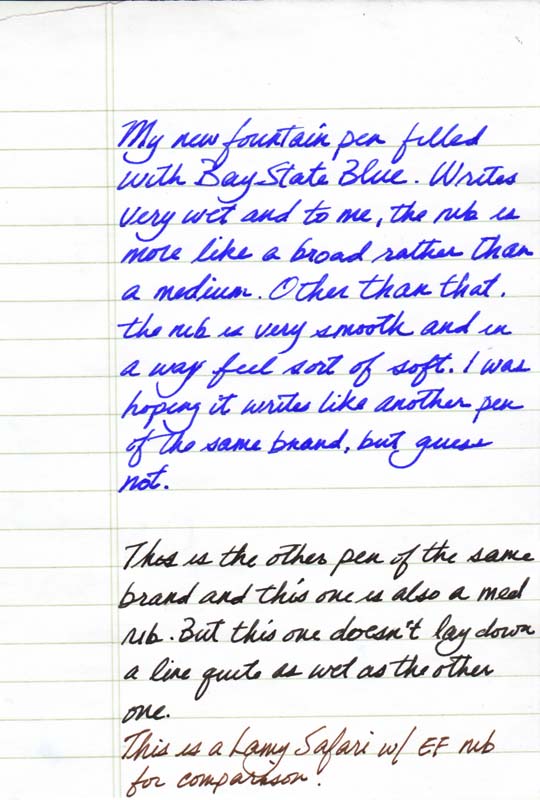 My new fountain pen filled
with Bay State Blue. Writes
very wet and to me, the nib is
more like a broad rather than
a medium. Other than that.
the nib is very smooth and in
a way feel sort of soft. I was
hoping it writes like another pen
of the same brand, but guess
not.
This is the other pen of the same
brand and this one is also a med
nib. But this one doesn't lay down
a line quite as wet as the other
one.
This is a Lamy Safari w/ EF nib
for comparison.